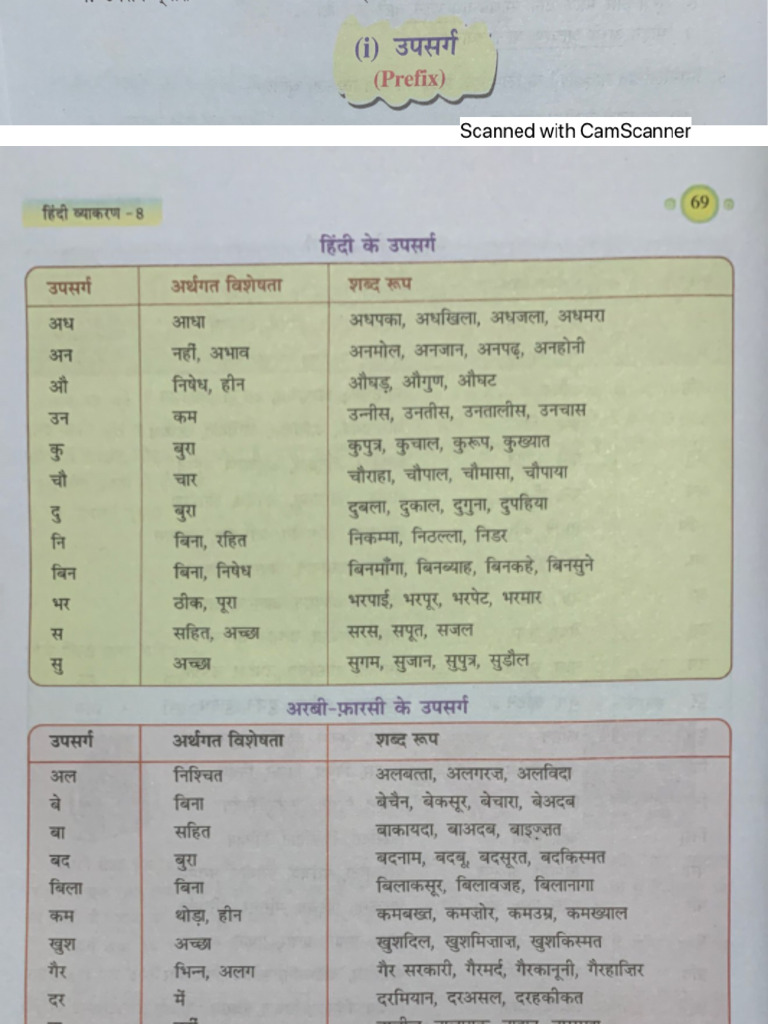 (i) उपसर्ग
(Prefix)
Scanned with CamScanner
हिंदी व्याकरण - 8
69
हिंदी के उपसर्ग
उपसर्ग अर्थगत विशेषता शब्द रूप
अध आधा अधपका, अधखिला, अधजला, अधमरा
अन नहीं, अभाव अनमोल, अनजान, अनपढ़, अनहोनी
औ निषेध, हीन औघड़, औगुण, औघट
उन कम उन्नीस, उनतीस, उनतालीस, उनचास
कु बुरा कुपुत्र, कुचाल, कुरूप, कुख्यात
चौ चार चौराहा, चौपाल, चौमासा, चौपाया
दु बुरा दुबला, दुकाल, दुगुना, दुपहिया
नि बिना, रहित निकम्मा, निठल्ला, निडर
बिन बिना, निषेध बिनमाँगा, बिनब्याह, बिनकहे, बिनसुने
भर ठीक, पूरा भरपाई, भरपूर, भरपेट, भरमार
स सहित, अच्छा सरस, सपूत, सजल
सु अच्छा सुगम, सुजान, सुपुत्र, सुडौल
अरबी-फ़ारसी के उपसर्ग
उपसर्ग अर्थगत विशेषता शब्द रूप
अल निश्चित अलबत्ता, अलगरज़, अलविदा
बे बिना बेचैन, बेकसूर, बेचारा, बेअदब
बा सहित बाकायदा, बाअदब, बाइज़्ज़त
बद बुरा बदनाम, बदबू, बदसूरत, बदकिस्मत
बिला बिना बिलाकसूर, बिलावजह, बिलानागा
कम थोड़ा, हीन कमबख्त, कमज़ोर, कमउम्र, कमख्याल
खुश अच्छा खुशदिल, खुशमिज़ाज़, खुशकिस्मत
गैर भिन्न, अलग गैर सरकारी, गैरमर्द, गैरकानूनी, गैरहाज़िर
दर में दरमियान, दरअसल, दरहकीकत